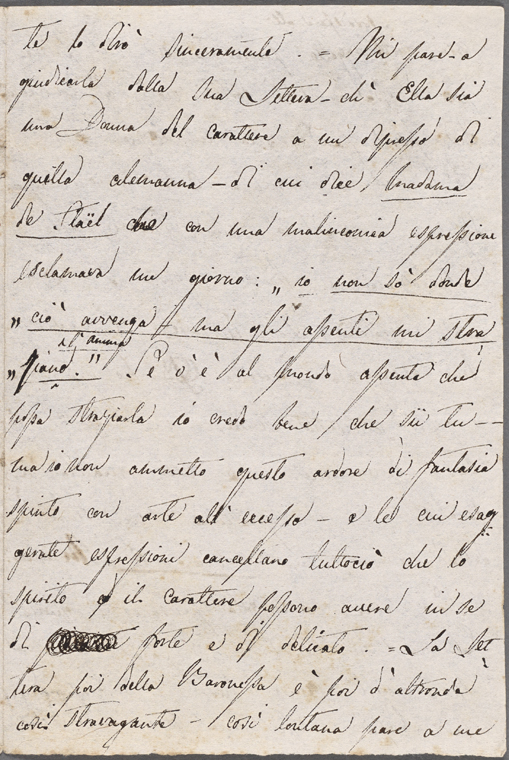 te lo dirò sinceramente. = Mi pare - a
giudicarla dalla sua Lettera - ch' Ella sia
una Donna del carattere a un dipresso di
quella alemanna - di cui dice Madama
de Staël che con una malinconica espressione
esclamava un giorno: „ io non sò donde
„ ciò avvenga ma gli assenti mi stra
l'anima
„ ziano." Se v'è al mondo assente che
possa straziarla io credo bene che sii tu - -
ma io non ammetto questo ardore di fantasia
spinto con arte all' eccesso - e le cui esag
gerate espressioni cancellano tuttociò che lo
spirito e il carattere possono avere in se
di forte e di delicato. = La Let
tera poi della Baronessa è poi d'altronde
così stravagante - così lontana pare a me